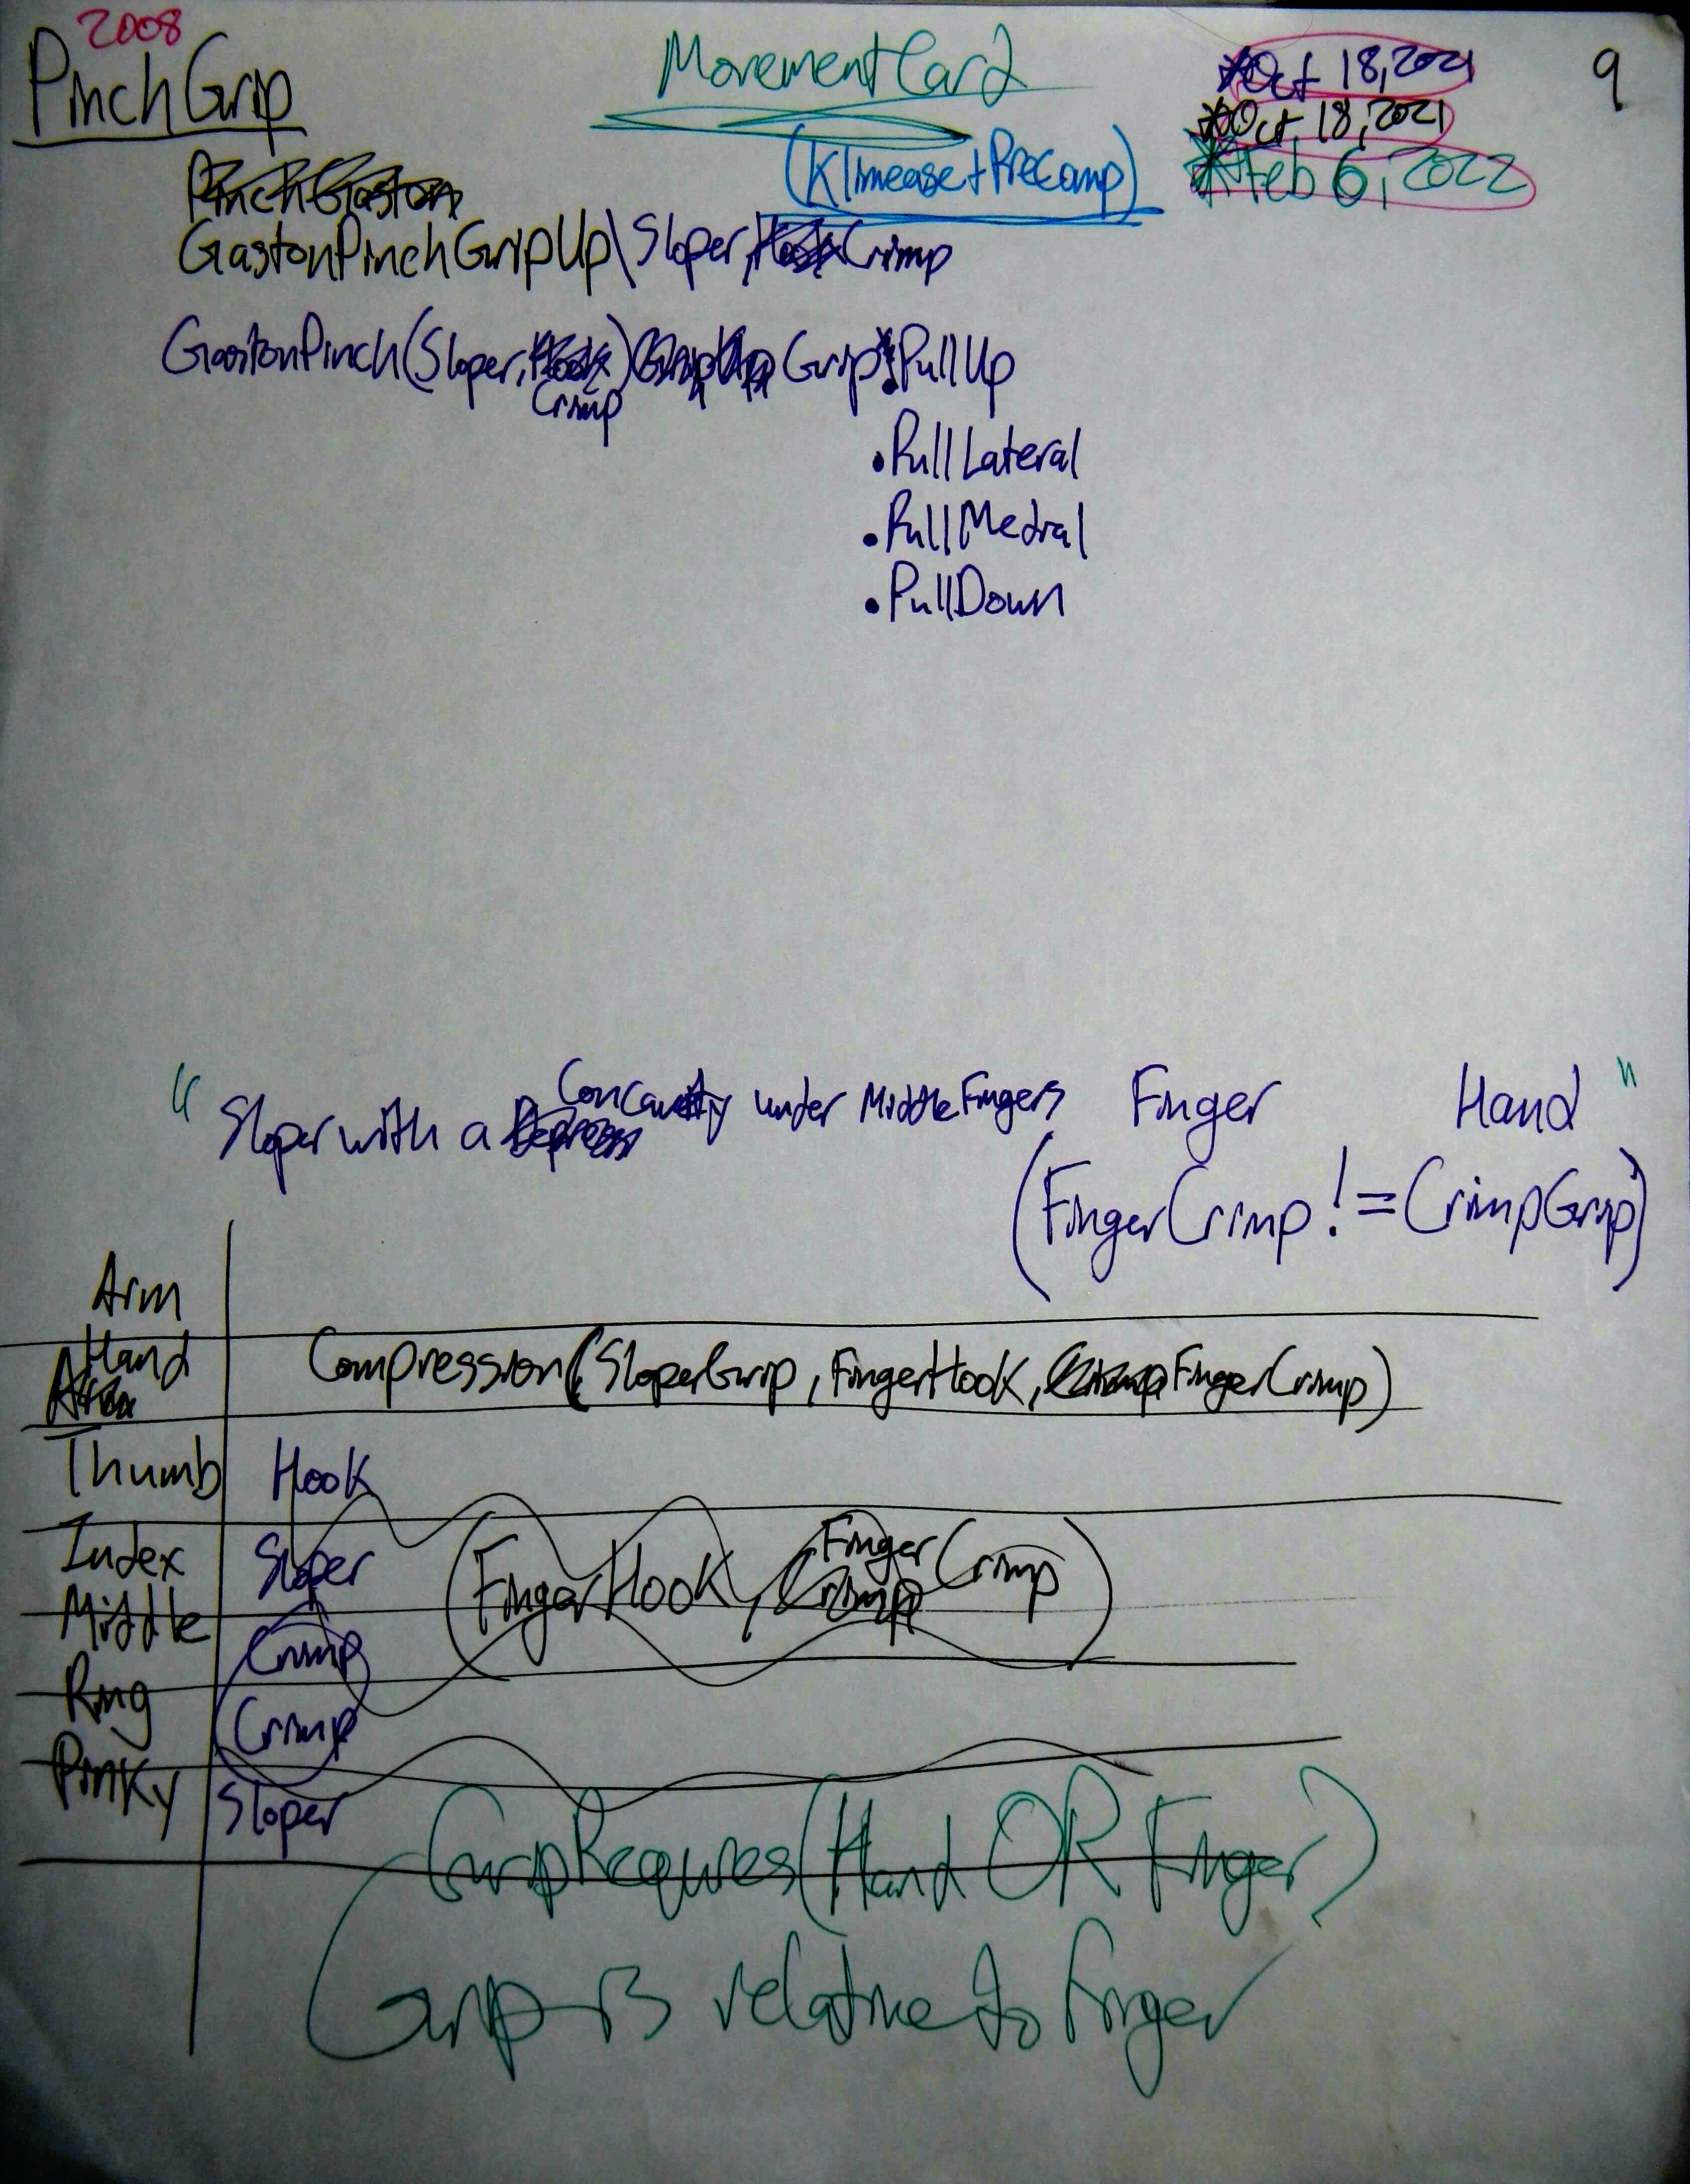 2008
PinchGrip
MovementCard
(Klimease+PreComp)
*Oct 18, 2021
*Oct 18, 2021
*Feb 6, 2022
9
PinchGaston
GastonPinchGripUp\Sloper, Hook Crimp
GastonPinch(Sloper, Hook) GripUp Grip: PullUp
Crimp
• PullLateral
• PullMedial
• PullDown
" Sloper with a Depress Concavity under MiddleFingers
Finger Hand "
(FingerCrimp != CrimpGrip)
Arm
Hand Compression(SloperGrip, FingerHook, Crimp FingerCrimp)
Thumb Hook
Index Sloper (FingerHook, Crimp FingerCrimp)
Middle Crimp
Ring Crimp
Pinky Sloper
GripRequires(Hand OR Finger)
Grip is relative to finger